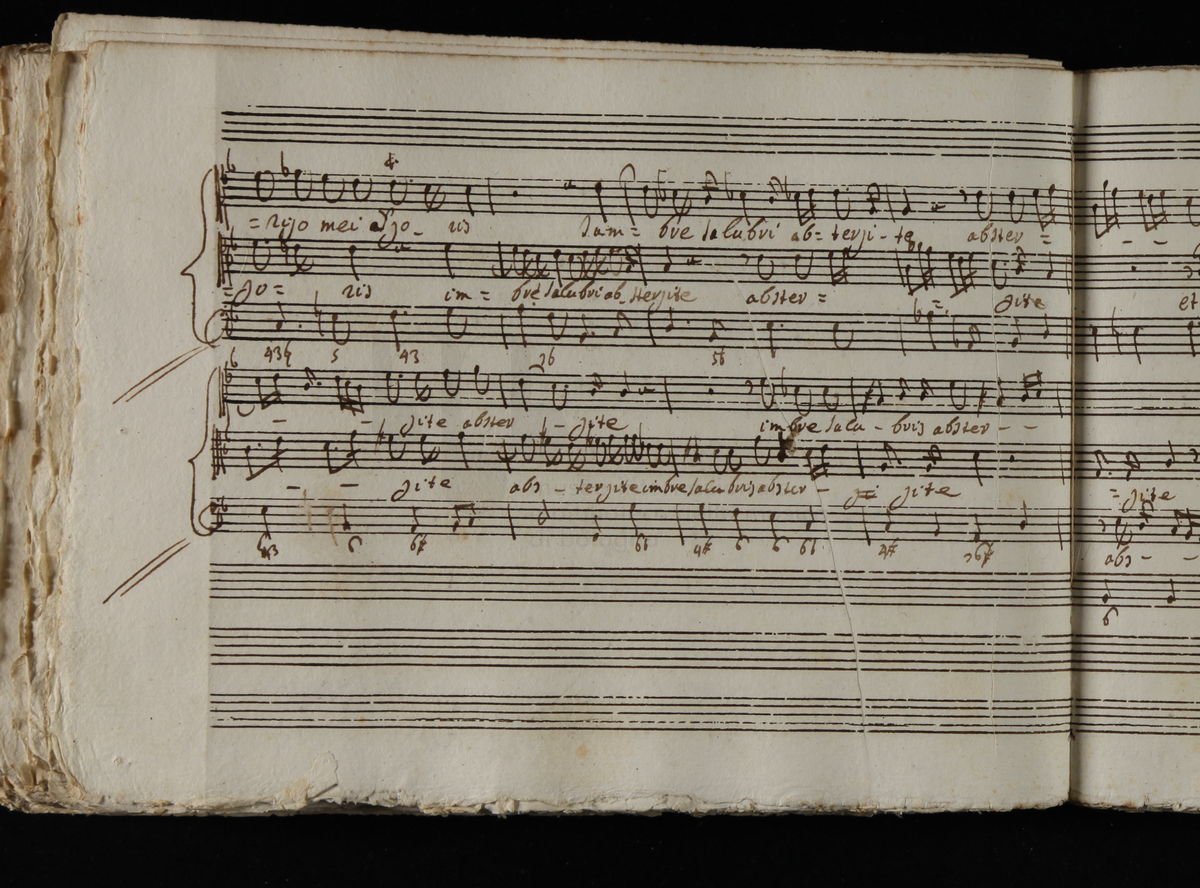 =rijo mei dJo- ris Iam= bre salubri ab= terji-te abster = - -
=Jo= ris im= bre salubri ab sterjite abster = = jite et
434 5 43 36 56
- - jite abster - - jite imbre salu - bris abster - -
- - jite abs - terjite imbre salubris abster - jite =jite
43 6 6# 6b 4# 6 6 6b 4# 6# abs - -
6